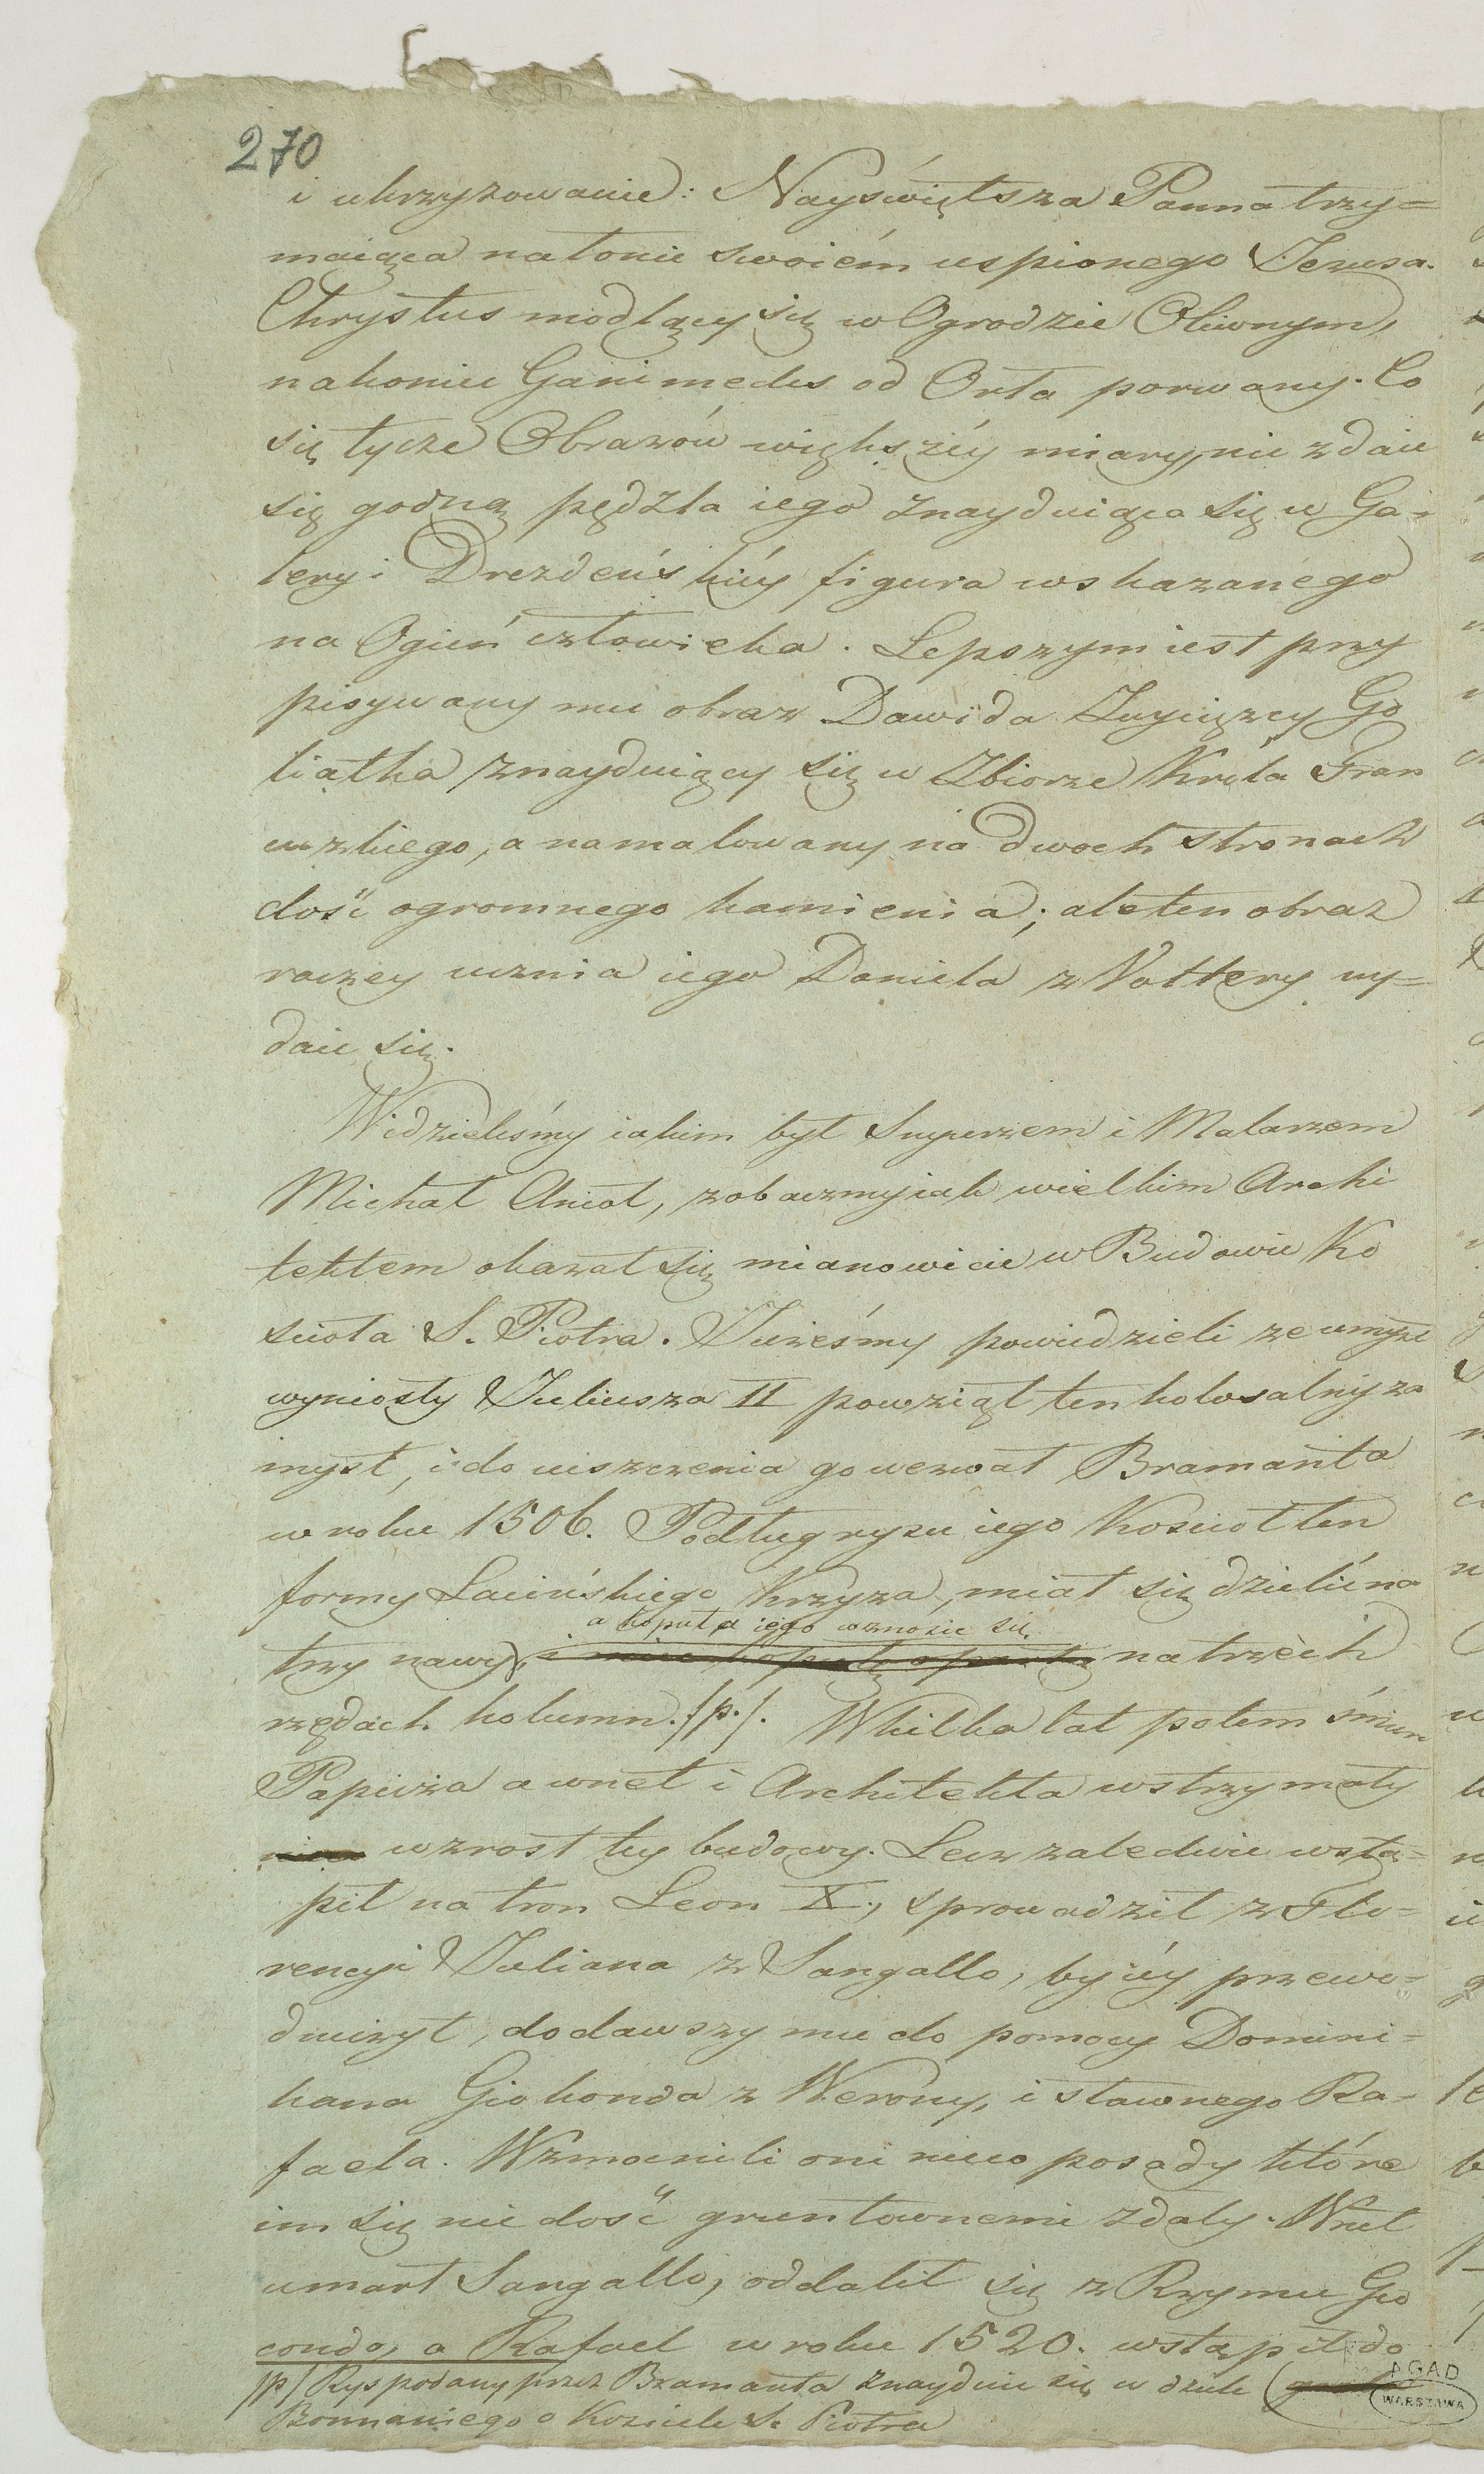 270
i ukrzyżowanie: Nayświętsza Panna trzy=
maiąca na łonie swoiém uspionego Jezusa.
Chrystus modlący się w Ogrodzie Oliwnym,
nakoniec Ganimedes od Orła porwany. Co
się tycze Obrazów większéy miary, nie zdaie
się godną pędzla iego znayduiąca się w Ga=
leryi Drezdeńskiéy figura wskazanego
na Ogień człowieka. Lepszym iest przy
pisywany mu obraz Dawida Zwycięzcy Go
liatha znayduiący się w Zbiorze Króla Fran
cuzkiego, a namalowany na dwoch stronach
dość ogromnego kamienia; ale ten obraz
raczey ucznia iego Daniela z Volterry wy=
daie się.
Widzieliśmy iakim był Snycerzem i Malarzem
Michał Anioł, zobaczmy iak wielkim Archi
tektem okazał się mianowicie w Budowie Ko
scioła S. Piotra. Jużeśmy powiedzieli ze umysł
wyniosły Juliusza II powziął ten kolosalny za
mysł, i do uiszczenia go wezwał Bramanta
w roku 1506. Podług rysu iego Kosciół ten
formy Łacińskiego Krzyża, miał się dzielić na
a kopuła iego wznosic się
trzy nawy, na trzech
rzędach kolumn. /p./. W kilka lat potem śmierc
Papieża a wnet i Architekta wstrzymały
wzrost téy budowy. Lecz zaledwie wstą=
pił na tron Leon X., sprowadził z Flo=
rencyi Juliana z Sangallo, by iéy przewo=
dniczył, dodawszy mu do pomocy Domini=
kana Giokonda z Werony, i sławnego Ra=
faela. Wzmocnili oni nieco posady które
im się nie dość gruntownemi zdały. Wnet
umarł Sangallo, oddalił się z Rzymu Gio
condo, a Rafael w roku 1520. wstąpił do
/p/ Rys podany przez Bramanta znayduie się w dziele
Bonnaniego o Kosciele S. Piotra
AGAD
WARSZAWA